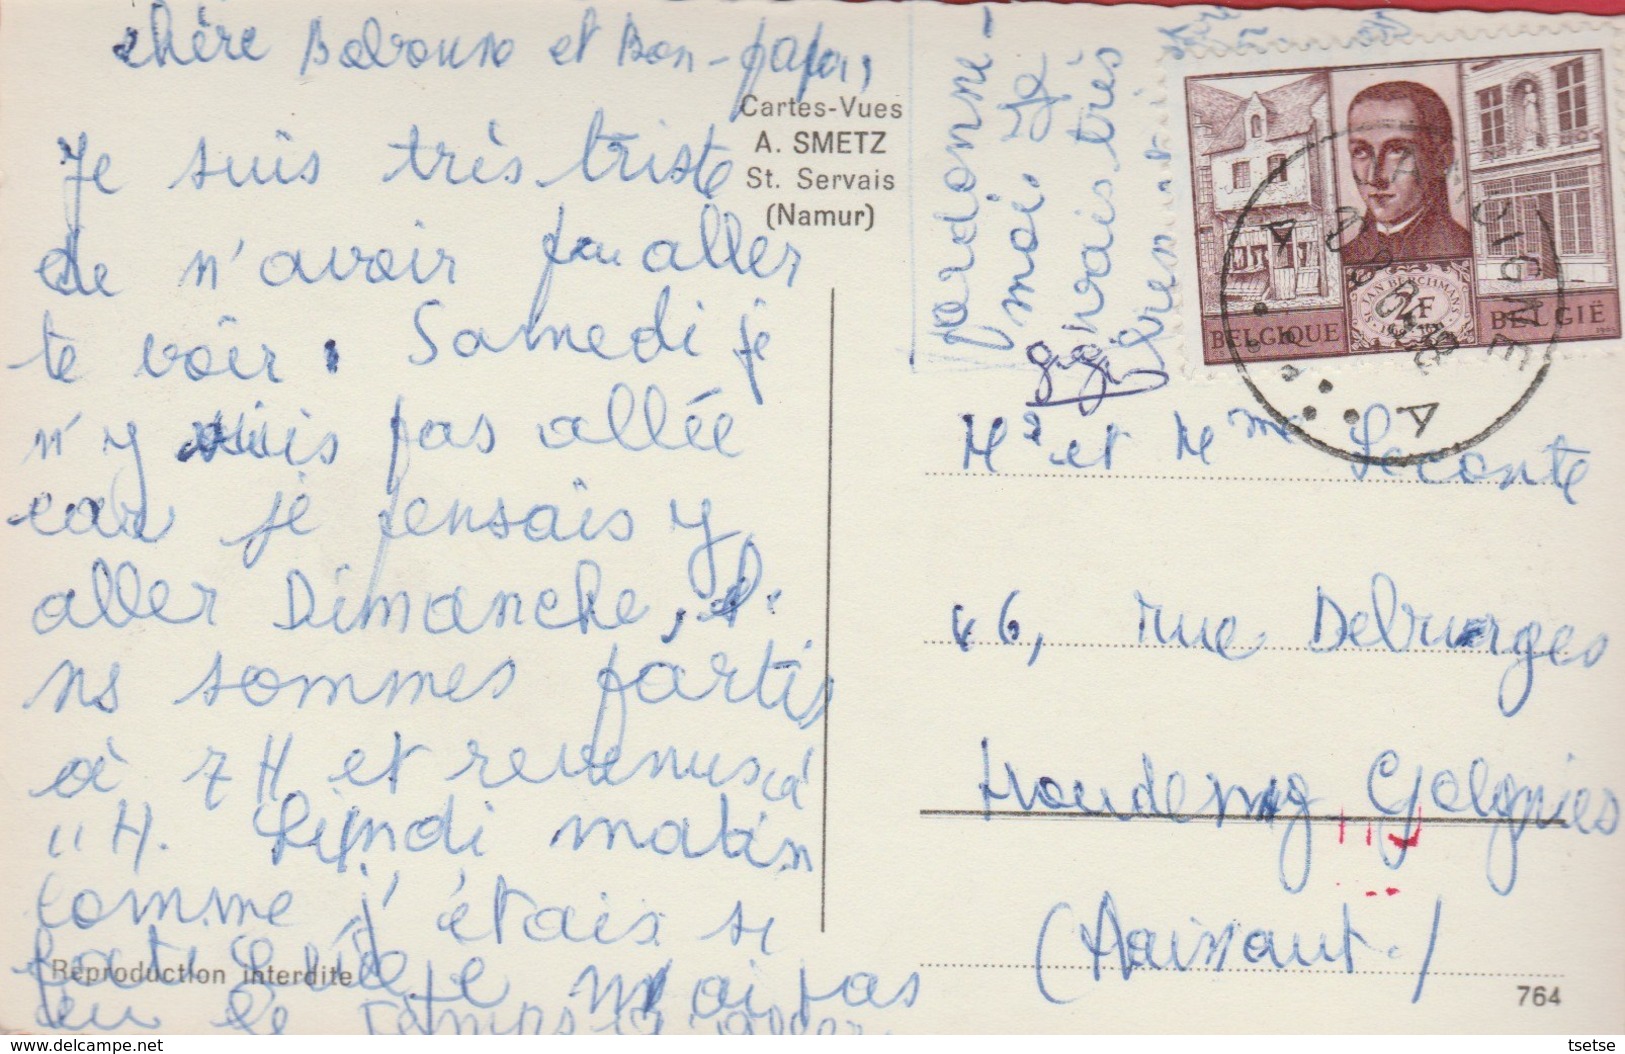 chère Bobonne et Bon-papa,
Je suis très triste
de n'avoir pu aller
te voir. Samedi je
n'y suis pas allée
car je pensais y
aller Dimanche,
ns sommes partis
à 7 H et revenus à
11 H. Lundi matin
comme j'étais si
fatiguée je n'ai pas
eu le temps d'aller
Cartes-Vues
A. SMETZ
St. Servais
(Namur)
Reproduction interdite
pardonne-
moi. Je
vais très
bien
gigi
BELGIQUE
ST JAN BERCHMANS
2F
BELGIË
JAMBIGNE
A
A
Mr et Mme Leconte
46, rue Debruges
Houdeng Goegnies
(Hainaut)
764
tsetse